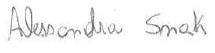 Alessandra Smak